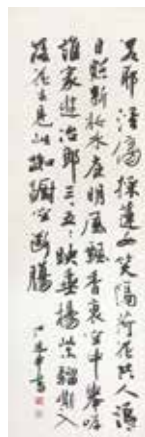 若耶溪傍採蓮女笑隔荷花共人語
日照新妝水底明風飄香袂空中舉岸
誰家遊冶郎三々五々映垂楊紫騮嘶入
落花去見此踟躕空斷腸
書